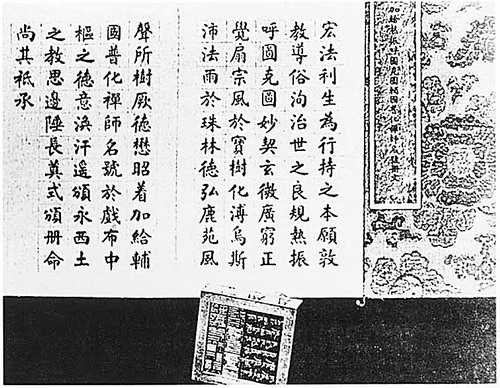 宏法利生為行持之本願敦
教導俗洵治世之良規熱振
呼圖克圖妙契玄微廣窮正
覺扇宗風於寶樹化溥烏斯
沛法雨於珠林德弘鹿苑風
聲所樹厥德懋昭着加給輔
國普化禪師名號於戲布中
樞之德意渙汗遙頒永西土
之教思邊陲長奠式頒册命
尚其祗承